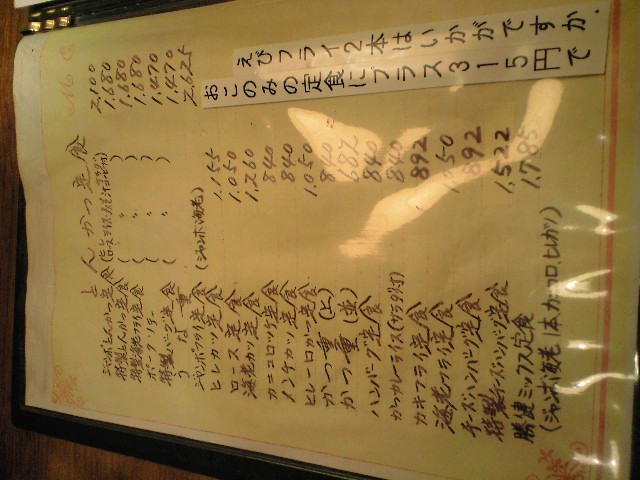 おこのみの定食にプラス315円で
えびフライ2本はいかがですか.
とんかつ定食
ジャンボとんかつ定食 2,100
特製とんかつ定食 ( 〃 ) 1,680
特製海老フライ定食 ( 〃 ) 1,680
ポークソテー ( 〃 ) 1,680
特製ハンバーグ定食 ( ) 1,470
うな重 1,470
ジャンボフライ定食 (ジャンボ海老) 2,625
ヒレカツ定食 1,155
ロース定食 1,050
海老カツ定食 1,260
カニコロッケ定食 840
メンチカツ定食 840
ヒレ一口かつ定食 1,050
かつ重 (上) 840
かつ重 (並) 682
ハンバーグ定食 840
かつカレーライス (サラダ付) 840
カキフライ定食 892
海老フライ定食 1,050
チーズハンバーグ定食 892
特製チーズハンバーグ定食 1,522
勝健ミックス定食 1,785
(ジャンボ海老1本、カニコロ、ヒレカツ)